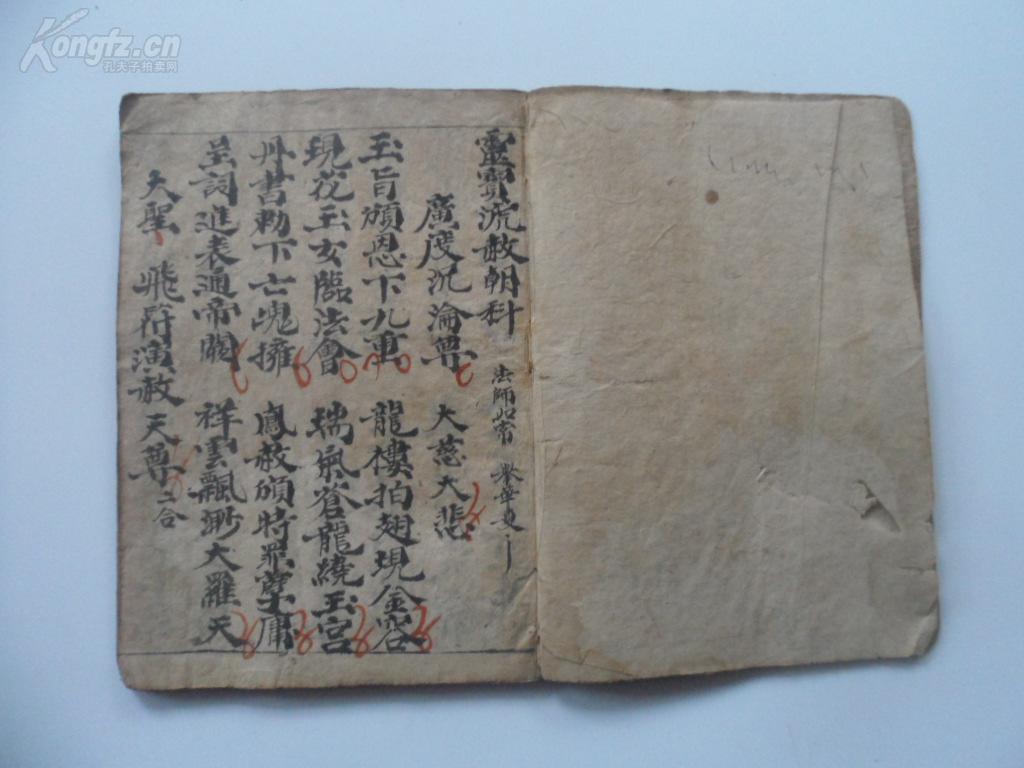 Kongfz.cn
孔夫子拍卖网
靈寳流赦朝科
法師如常 举華夏
廣度沉淪尊 大慈大悲
玉旨頒恩下九重 龍樓拍翅現金容
現花玉女臨法會 瑞氣蒼龍繞玉宮
丹書勅下亡魂擁 鳳赦頒時罪孽庸
呈詞進表通帝闕 祥雲飄渺大羅天
大聖 飛符演赦天尊 二合